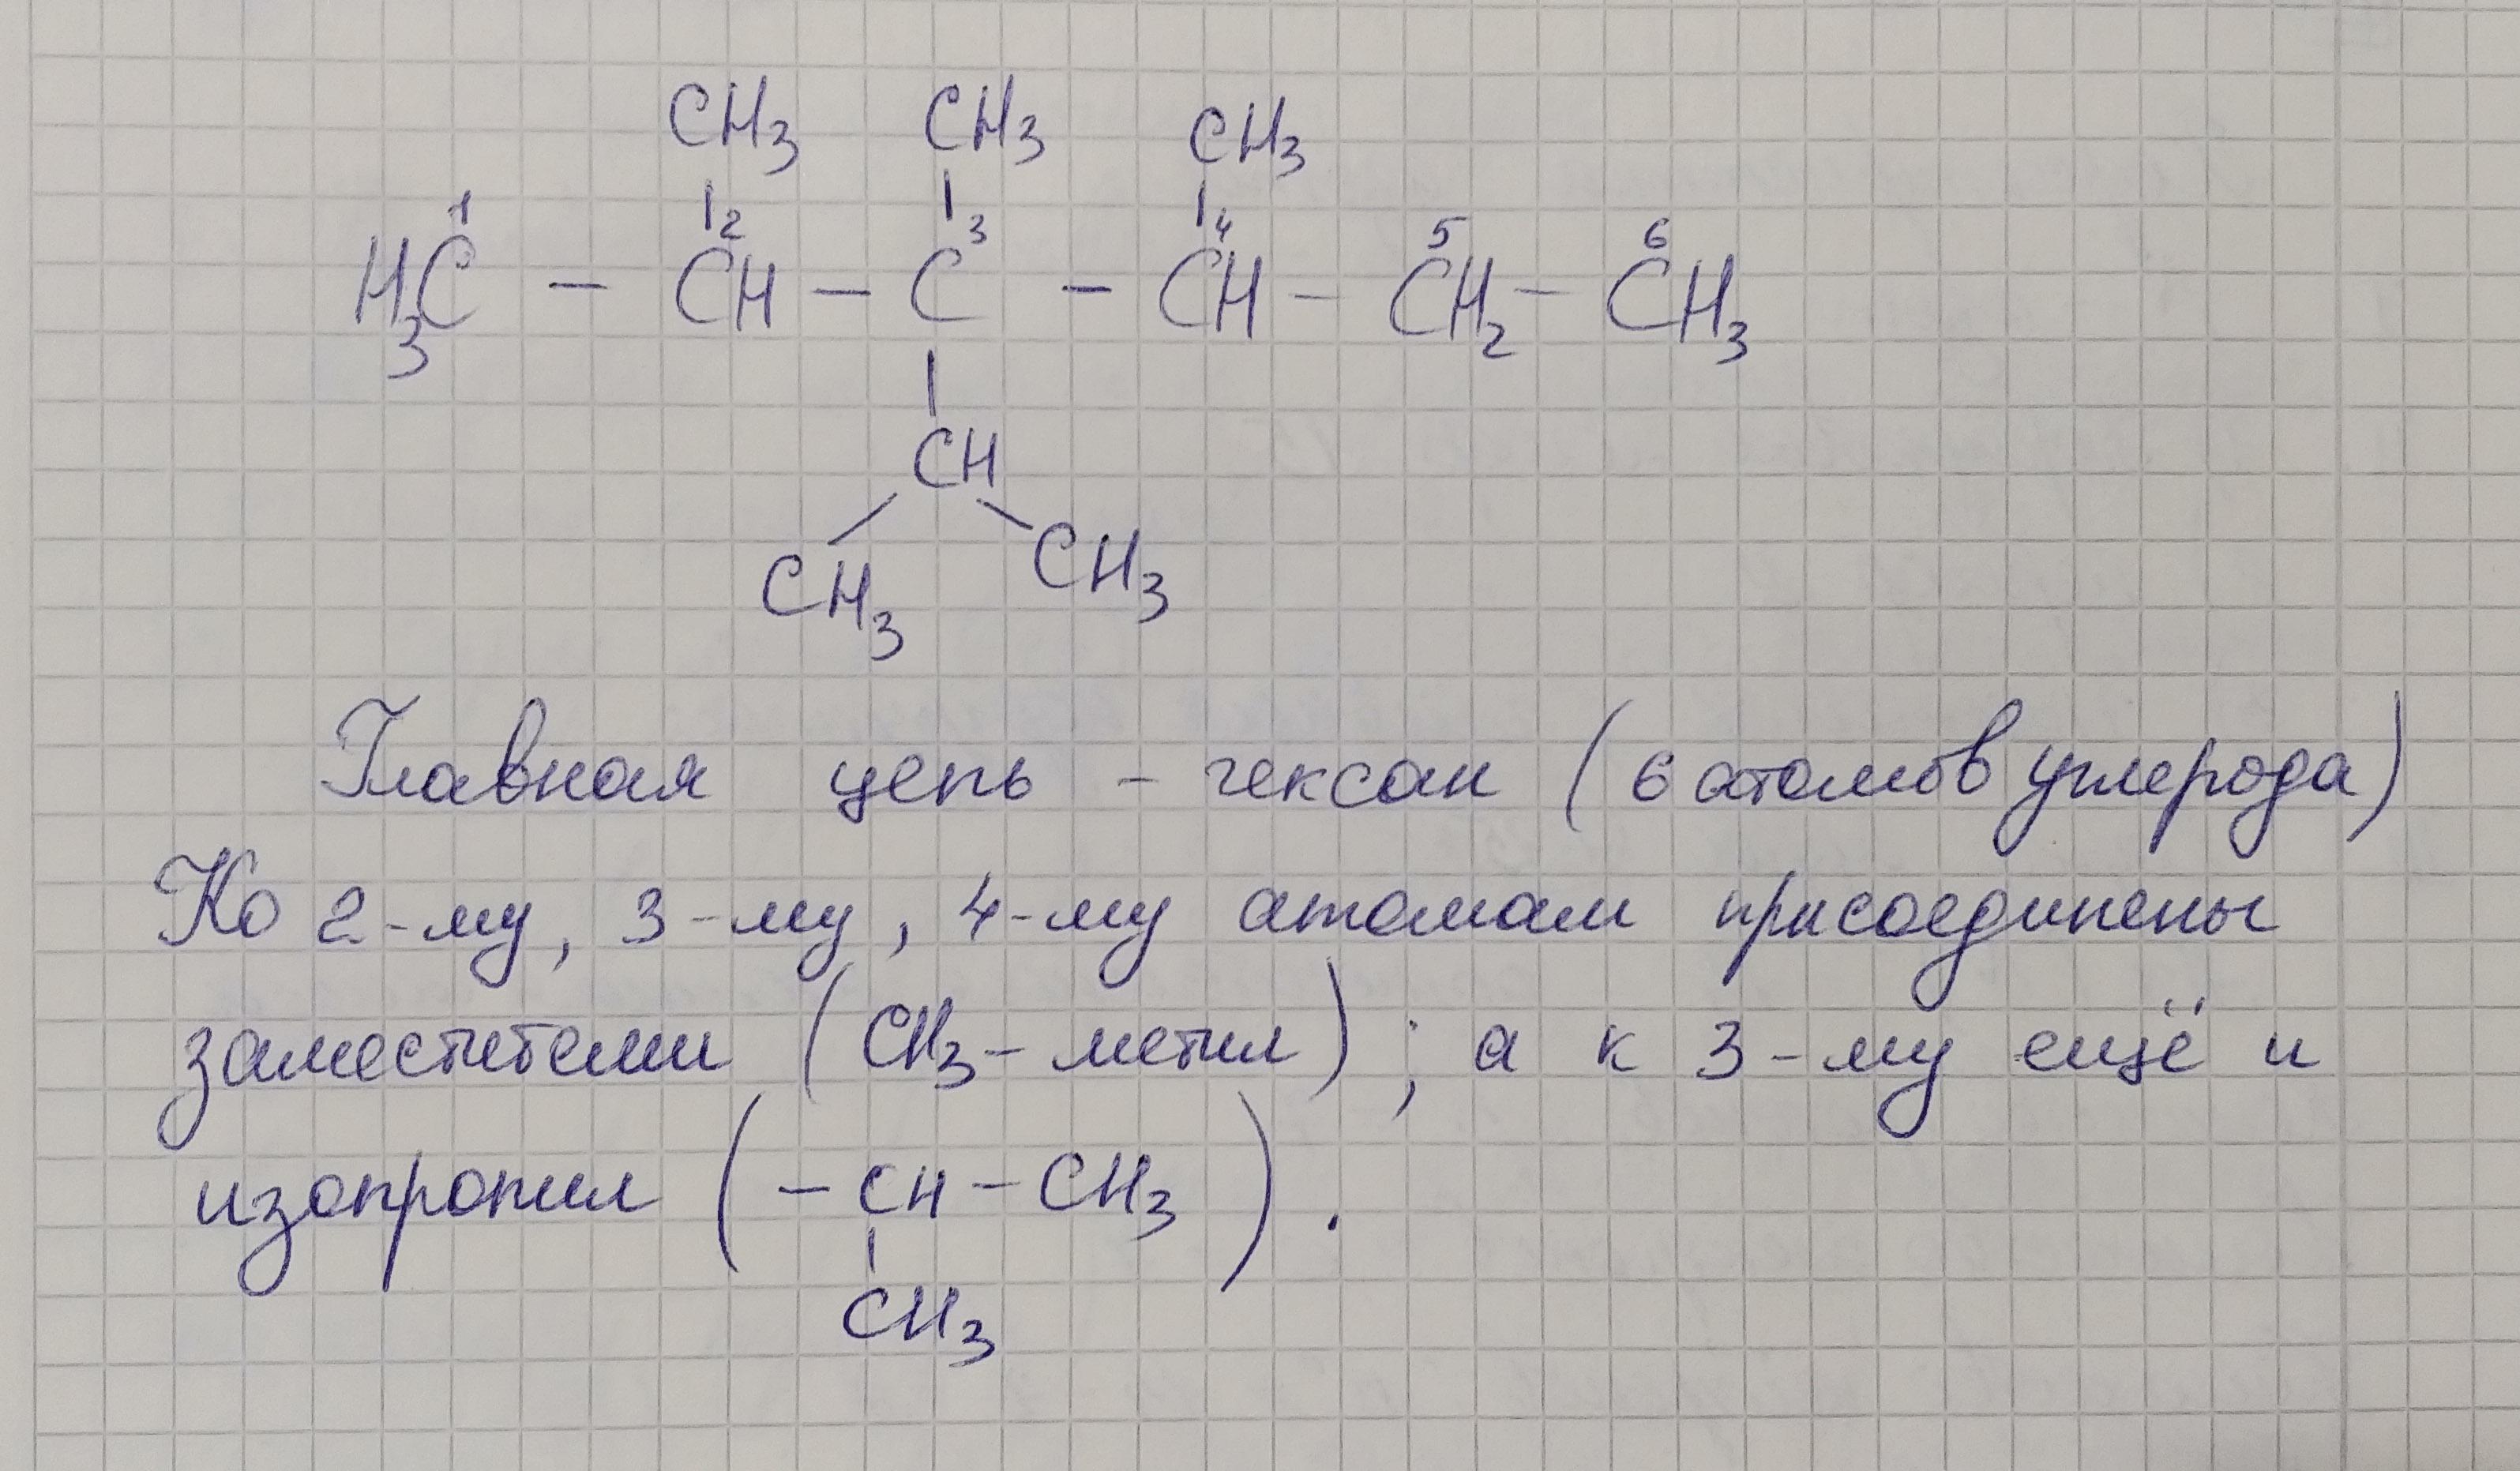 CH3 CH3 CH3
1 2 3 4 5 6
H3C – CH – C – CH – CH2 – CH3
CH
CH3 CH3
Главная цепь – гексан (6 атомов углерода)
Ко 2-му, 3-му, 4-му атомам присоединены
заместители (CH3 – метил); а к 3-му ещё и
изопропил (– CH – CH3).
CH3